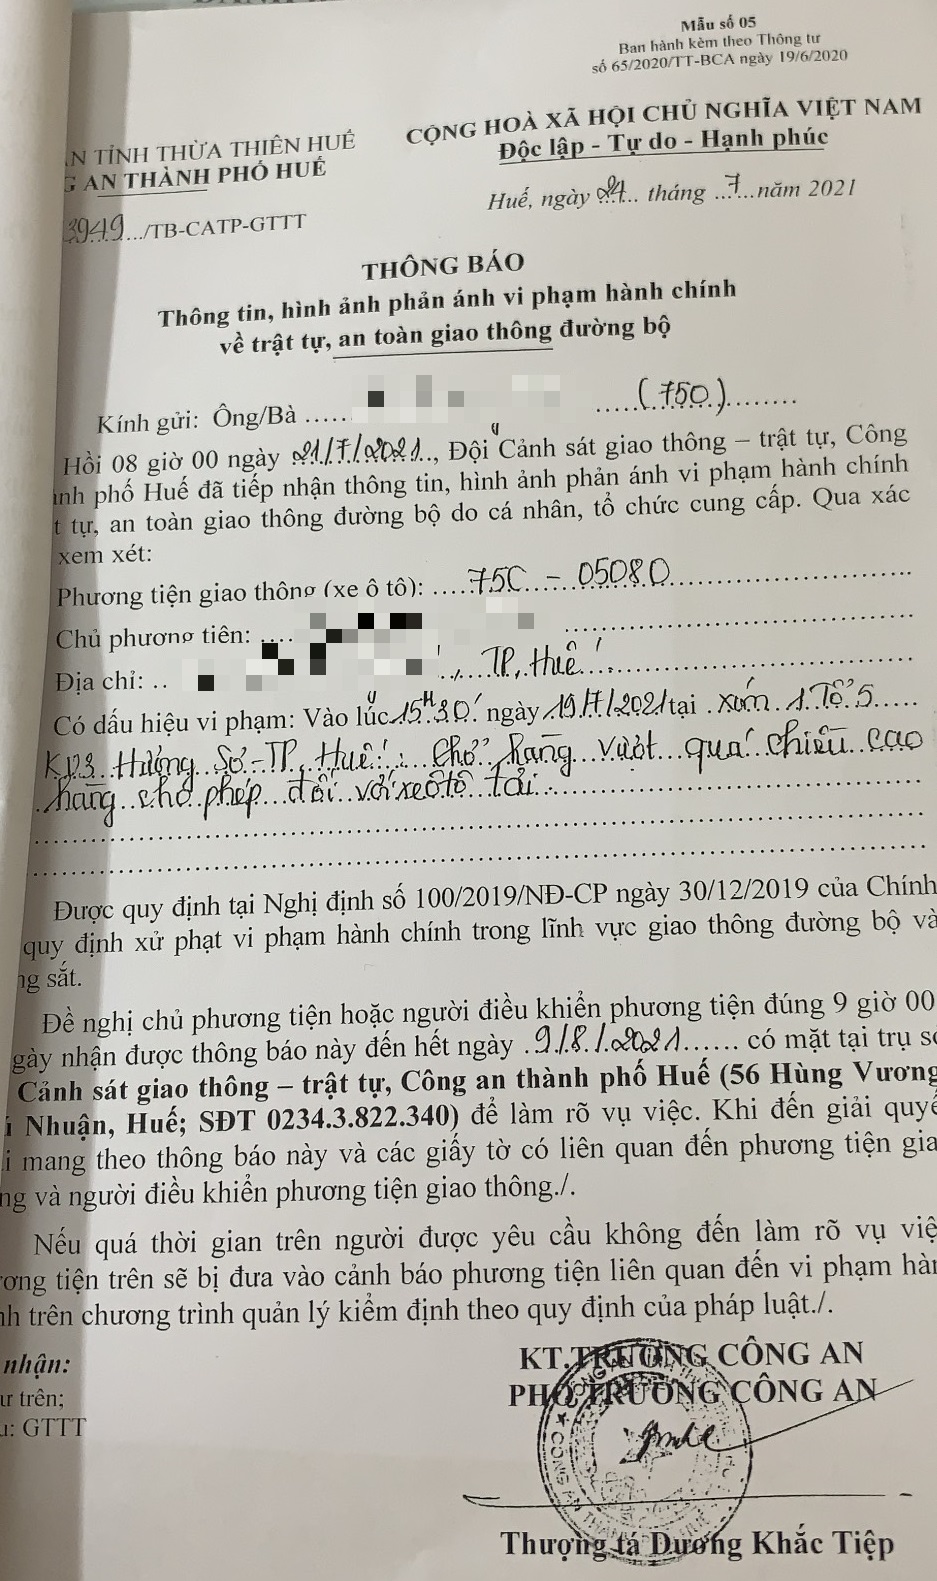 Mẫu số 05
Ban hành kèm theo Thông tư
số 65/2020/TT-BCA ngày 19/6/2020
AN TỈNH THỪA THIÊN HUẾ
G AN THÀNH PHỐ HUẾ
CỘNG HOÀ XÃ HỘI CHỦ NGHĨA VIỆT NAM
Độc lập - Tự do - Hạnh phúc
3949.../TB-CATP-GTTT
Huế, ngày 24... tháng ...7...năm 2021
THÔNG BÁO
Thông tin, hình ảnh phản ánh vi phạm hành chính
về trật tự, an toàn giao thông đường bộ
Kính gửi: Ông/Bà ..... .....(750).........
Hồi 08 giờ 00 ngày 21/7/2021.., Đội Cảnh sát giao thông – trật tự, Công
nh phố Huế đã tiếp nhận thông tin, hình ảnh phản ánh vi phạm hành chính
t tự, an toàn giao thông đường bộ do cá nhân, tổ chức cung cấp. Qua xác
xem xét:
Phương tiện giao thông (xe ô tô): ....75C - 05080..........
Chủ phương tiện: ....
Địa chỉ: .. ., TP, Huế..........
Có dấu hiệu vi phạm: Vào lúc 15H30' ngày 19/7/2021 tại .xóm 1 Tổ 5.....
KV3 Hương Sơ - TP Huế: Chở hàng vượt quá chiều cao
hàng cho phép đối với xe ôtô tải...........
Được quy định tại Nghị định số 100/2019/NĐ-CP ngày 30/12/2019 của Chính
quy định xử phạt vi phạm hành chính trong lĩnh vực giao thông đường bộ và
ng sắt.
Đề nghị chủ phương tiện hoặc người điều khiển phương tiện đúng 9 giờ 00
gày nhận được thông báo này đến hết ngày .9/8/2021...... có mặt tại trụ sở
Cảnh sát giao thông – trật tự, Công an thành phố Huế (56 Hùng Vương
ú Nhuận, Huế; SĐT 0234.3.822.340) để làm rõ vụ việc. Khi đến giải quyế
i mang theo thông báo này và các giấy tờ có liên quan đến phương tiện gia
ng và người điều khiển phương tiện giao thông./.
Nếu quá thời gian trên người được yêu cầu không đến làm rõ vụ việ
ương tiện trên sẽ bị đưa vào cảnh báo phương tiện liên quan đến vi phạm hàn
nh trên chương trình quản lý kiểm định theo quy định của pháp luật./.
nhận:
ư trên;
u: GTTT
KT.TRƯỞNG CÔNG AN
PHÓ TRƯỞNG CÔNG AN
Thượng tá Dương Khắc Tiệp